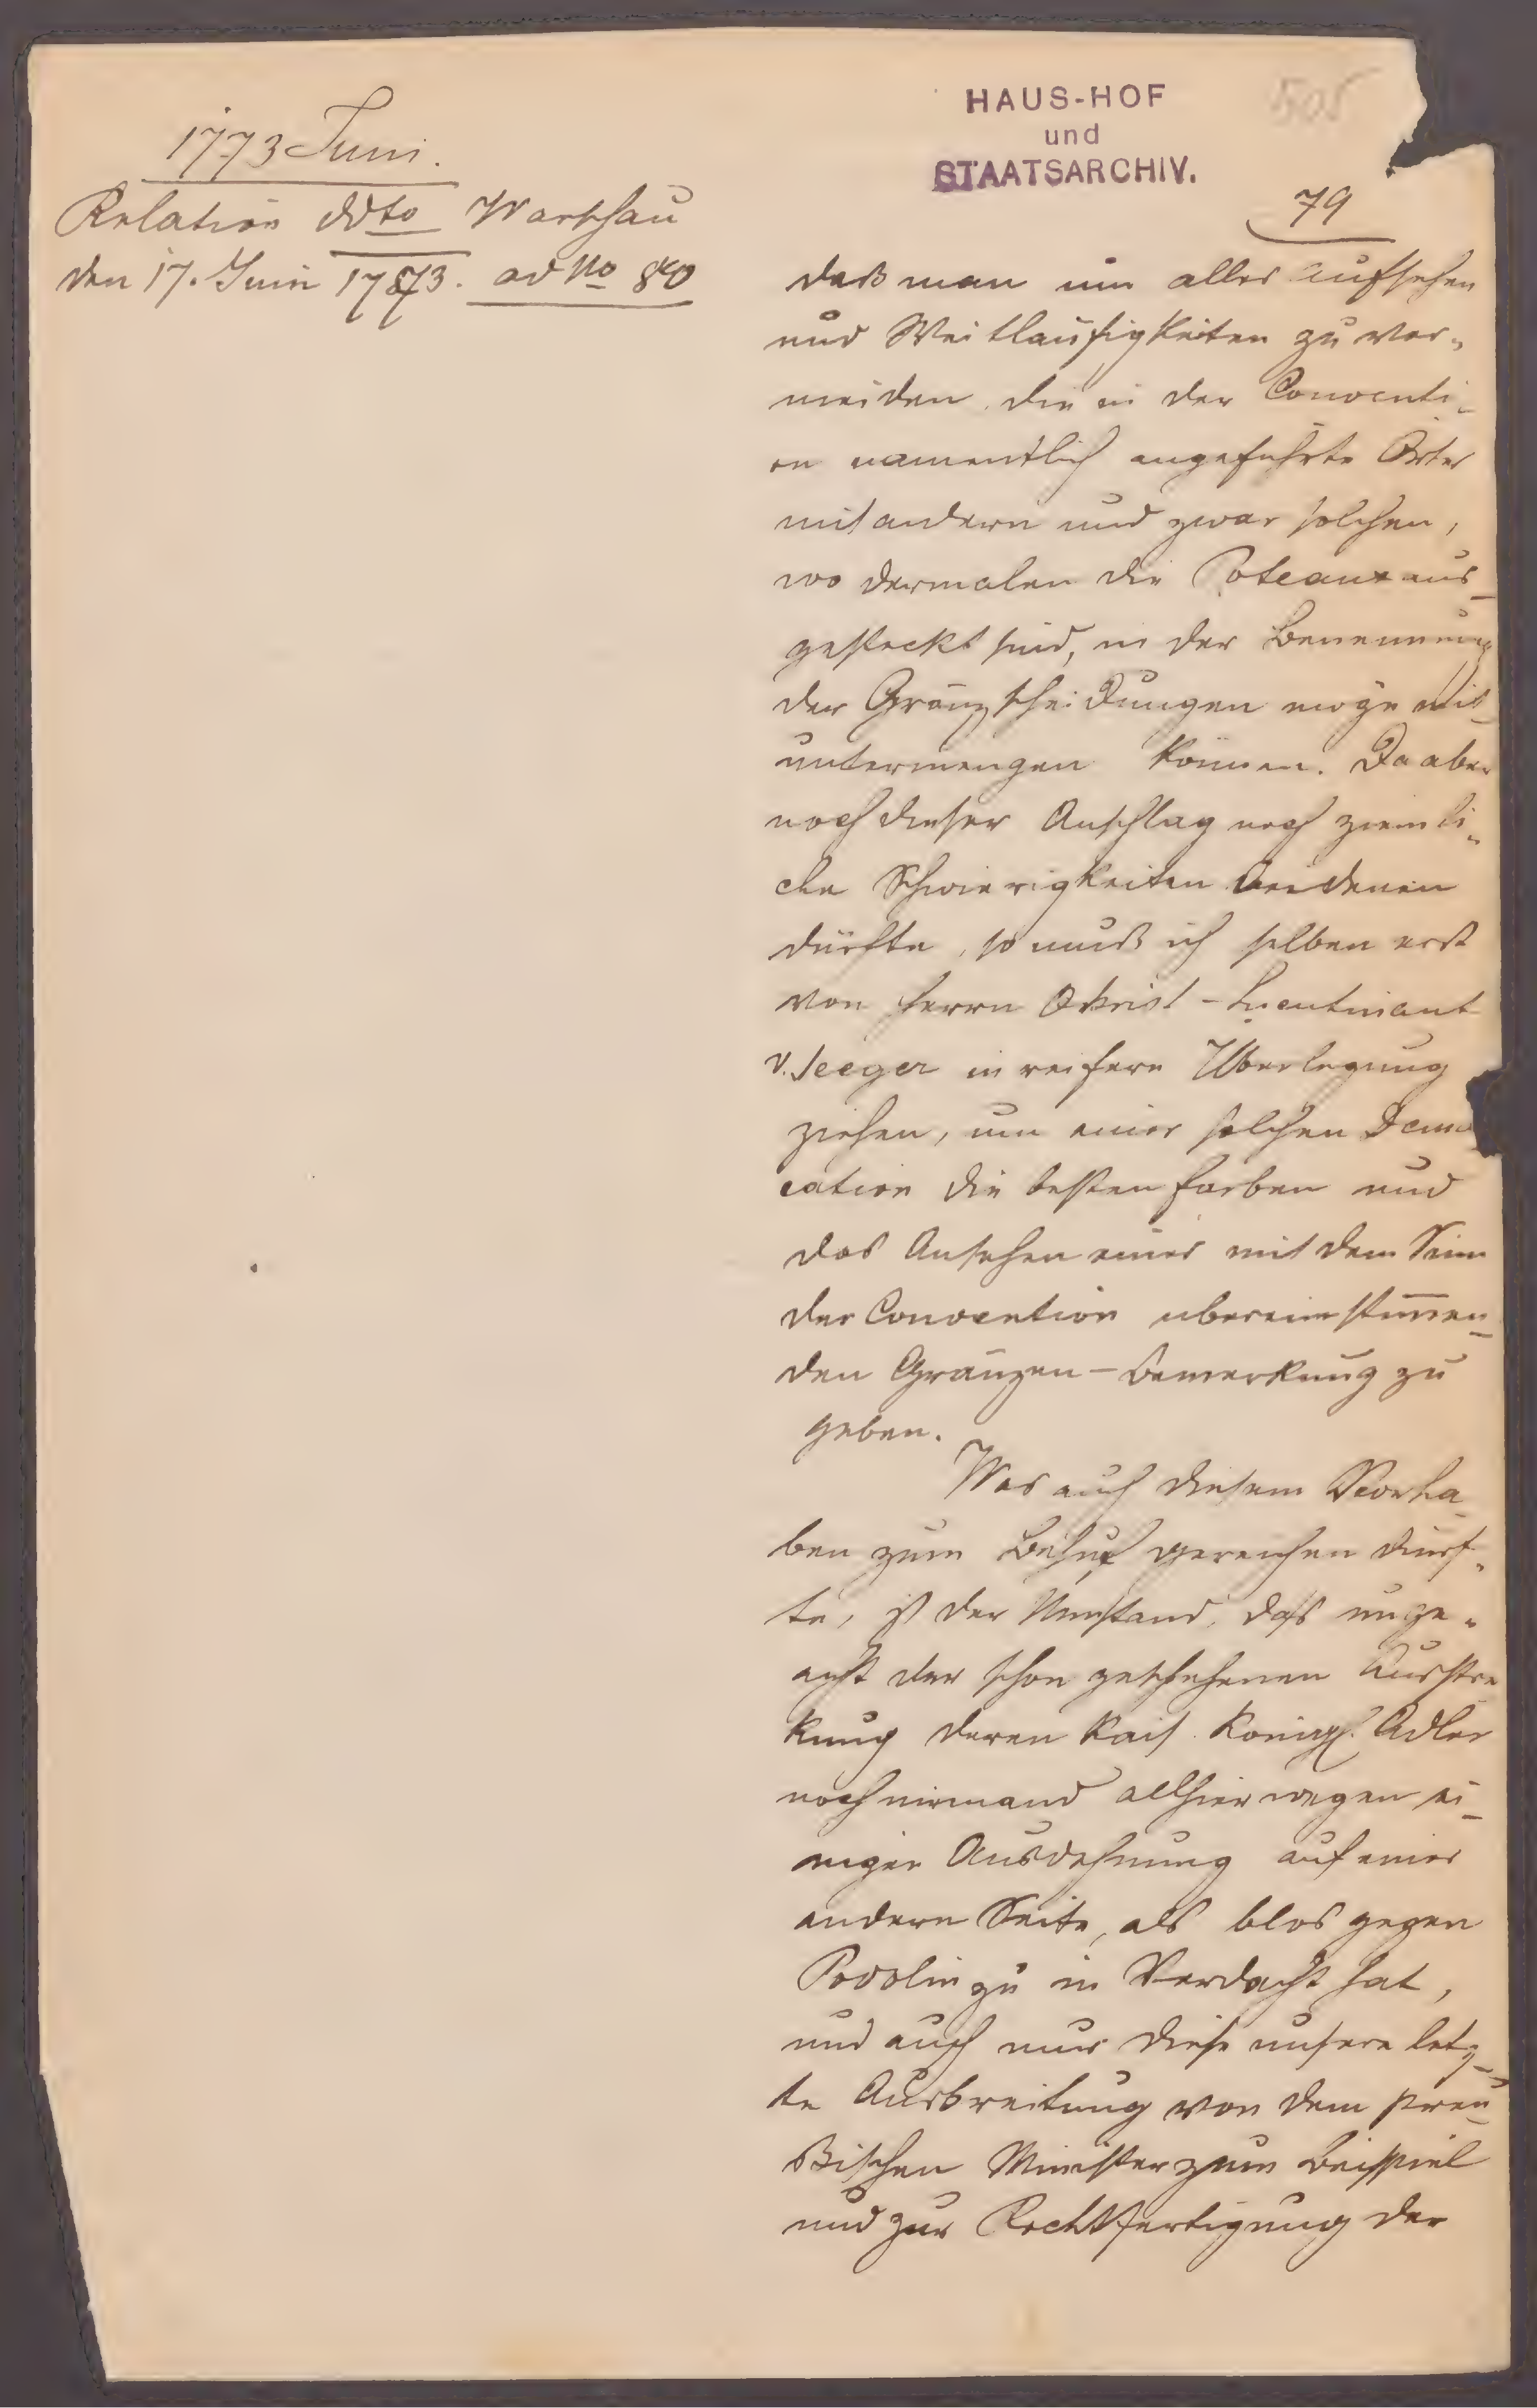 1773 Juni.
Relation ddto Warschau
den 17. Juni 1773. ad No 80
HAUS-HOF
und
STAATSARCHIV.
505
79
daß man um alles Aufsehen
und Weitläufigkeiten zu ver„
meiden, die in der Conventi-
on namentlich angeführte Örter
mit andern und zwar solchen,
wo dermalen die Poteaux aus-
gesteckt sind, in der Benennung
der Gränzscheidungen möge mit-
untermengen können. Da aber
noch dieser Anschlag noch ziemli„
che Schwierigkeiten
dürfte, so muß ich selben erst
von Herrn Obrist-Lieutinant
v. Seeger in reifere Überlegung
ziehen, um einer solchen Dem
cation die besten Farben und
das Ansehen einer mit dem Sinn
der Convention übereinstimmen-
den Gränzen-Bemerkung zu
geben.
Was auch diesem Vorha-
ben zum Behuf gereichen dürf„
te, ist der Umstand, daß unge„
acht der schon geschehenen Ausste
kung deren Kais. Königl. Adler
noch niemand allhier wegen ei-
niger Ausdehnung auf einer
andern Seite, als blos gegen
Podolin zu in Verdacht hat,
und auch nur diese unsere letz-
te Ausbreitung von dem preu-
ßischen Minister zum Beispiel
und zur Rechtfertigung der